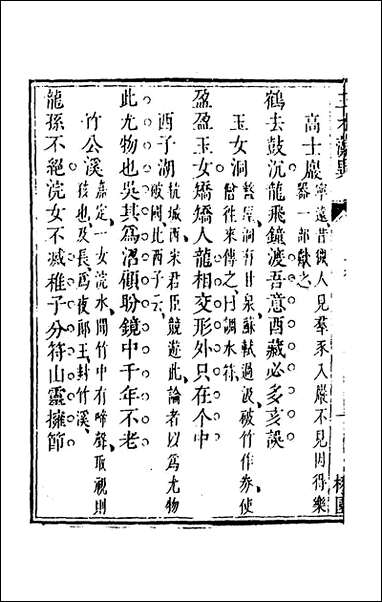 高士巖
寧遠昔獠人見羣豕入巖不見因得樂
器一部獻之
鶴去鼓沉龍飛鐘渡吾意酉藏必多亥誤
玉女洞
盩厔洞有甘泉蘇軾過汲破竹作券使
僧往來傳之曰調水符
盈盈玉女矯矯人龍相交形外只在个中
西子湖
杭城西宋君臣競遊此論者以爲尤物
破國比西子云
此尤物也吳其爲沼顧盼鏡中千年不老
竹公溪
嘉定一女浣水間竹中有啼聲取視則
孩也及長爲夜郎王封竹溪
龍孫不絕浣女不滅稚子分符山靈擁節